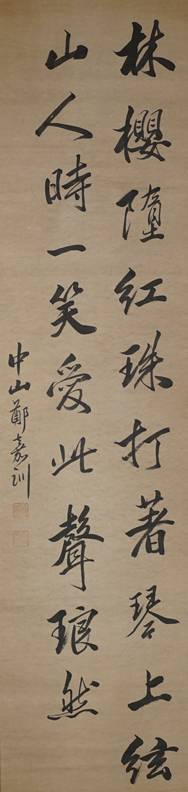 林櫻隨紅珠打著琴上絃
山人時一笑愛此聲琅然
中山鄭嘉訓